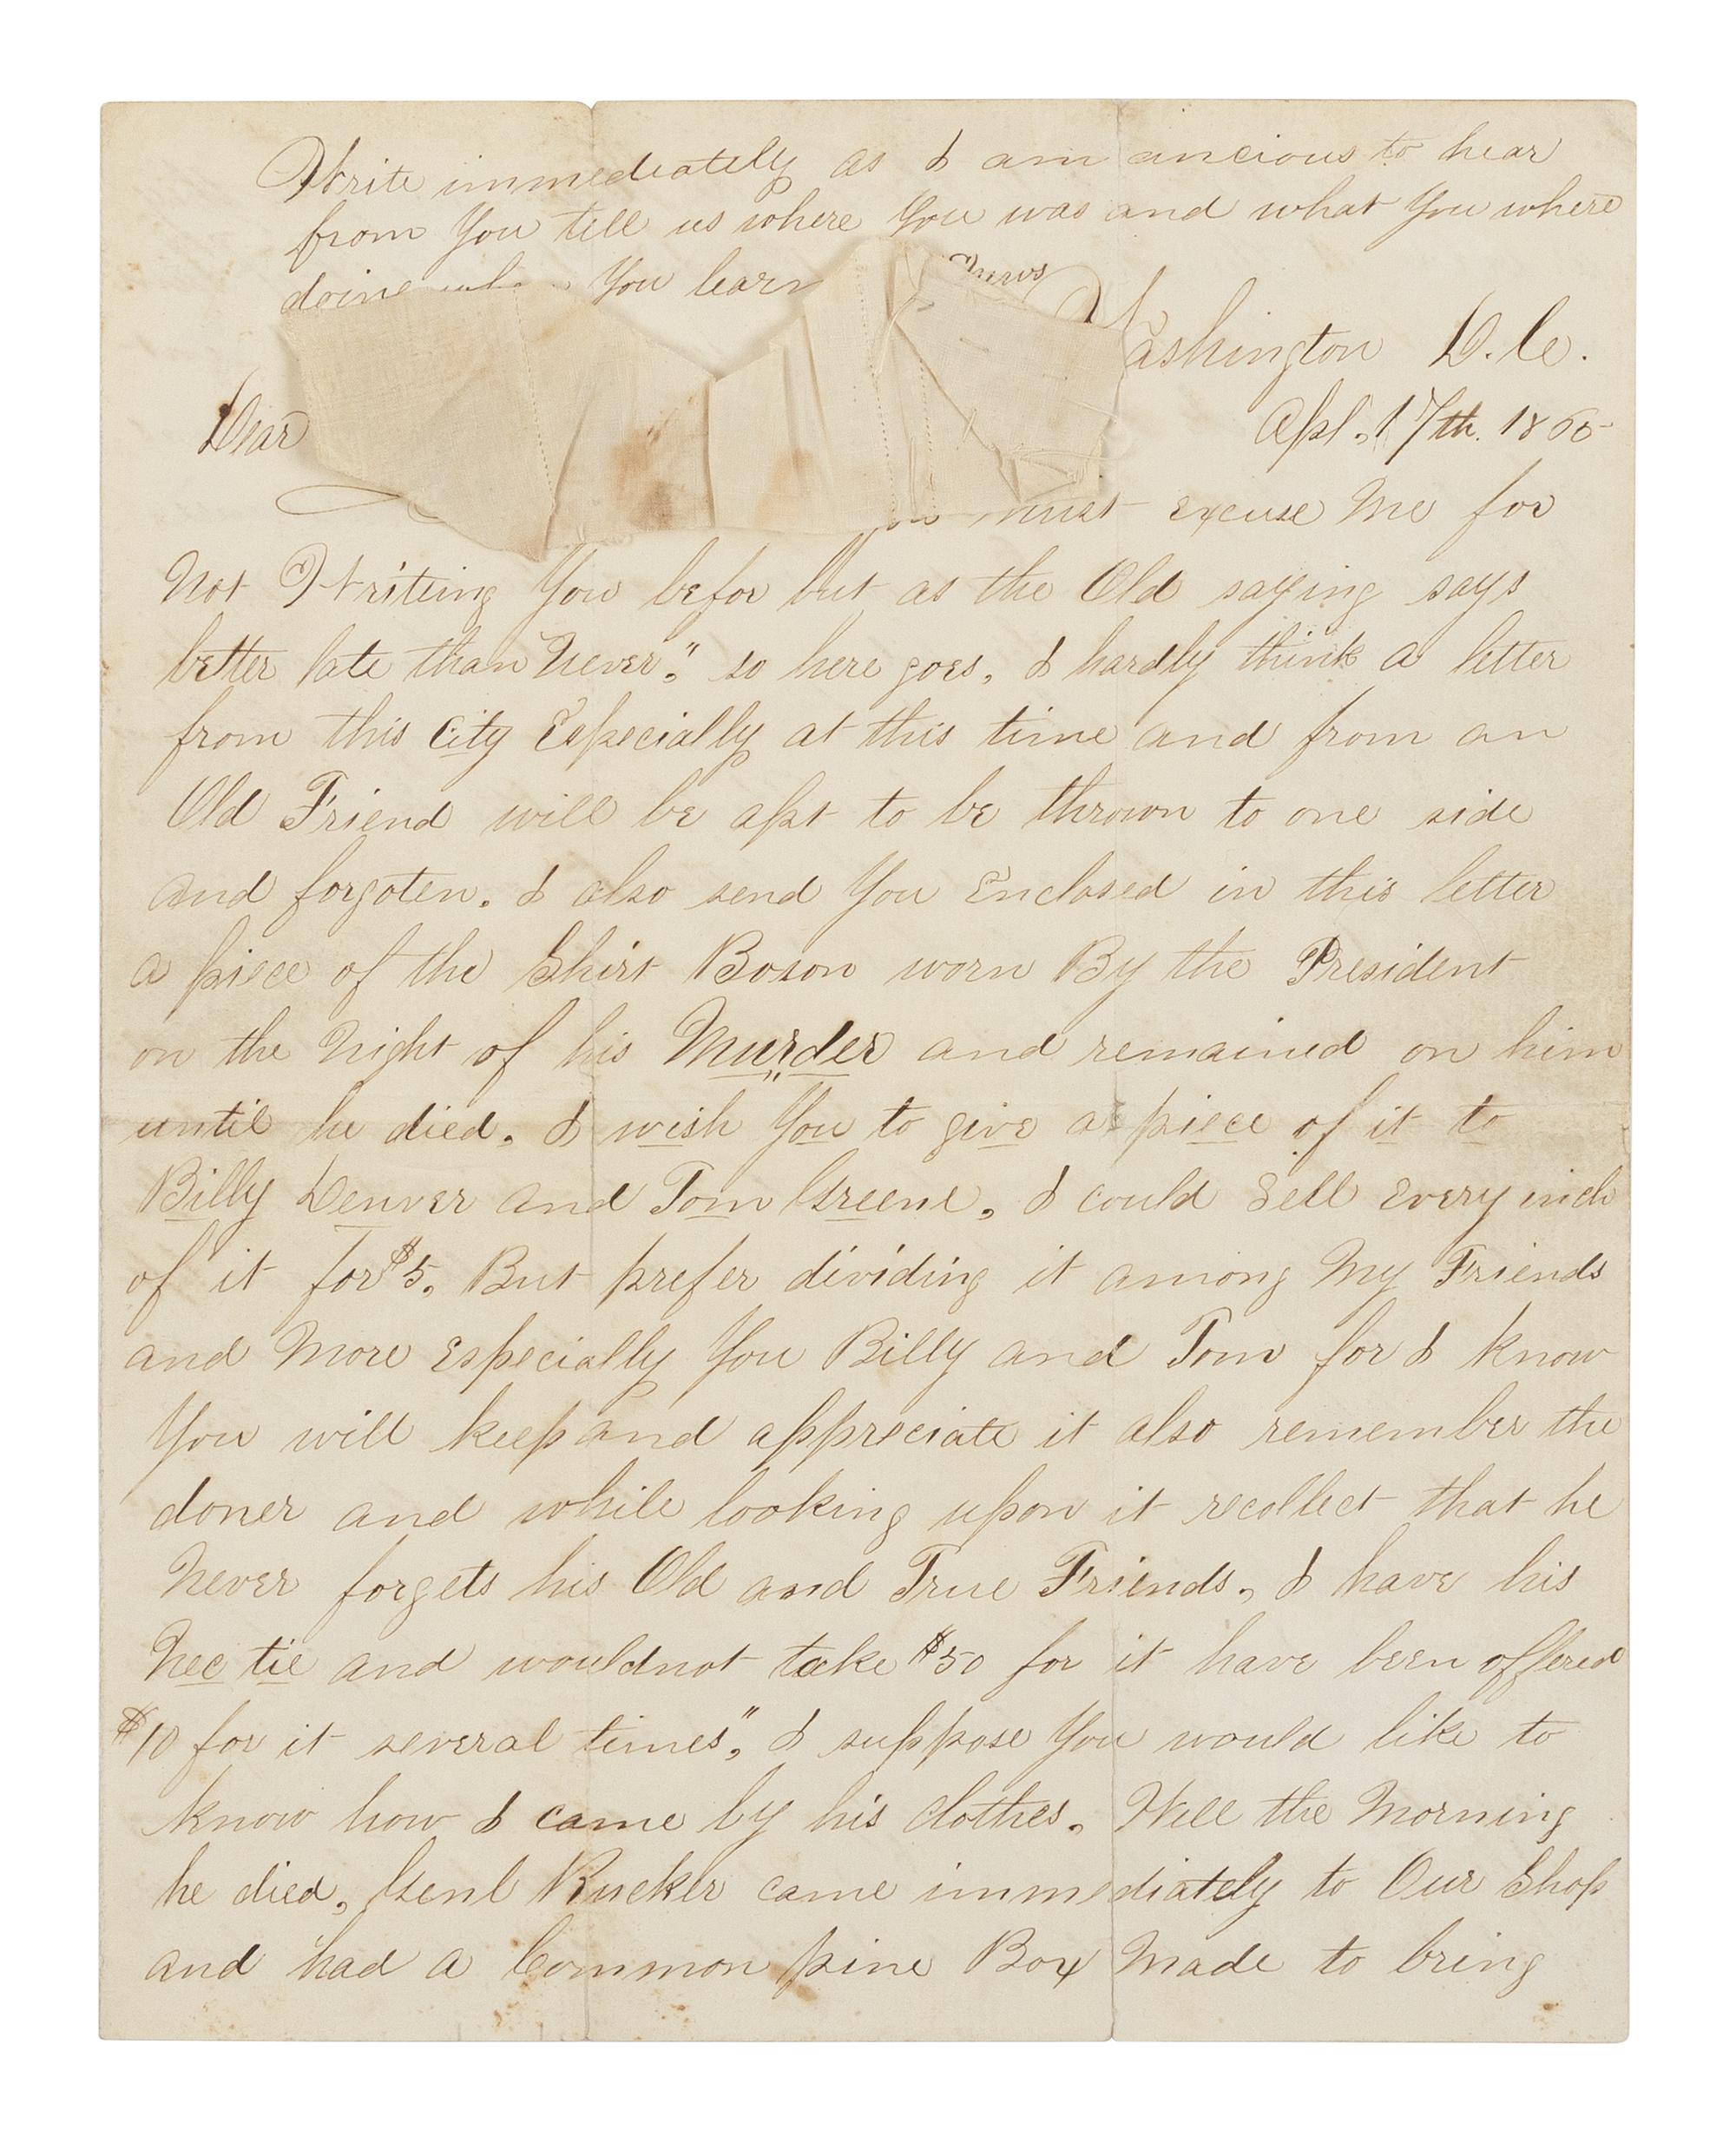 Write immediately as I am ancious to hear
from You till us where You was and what You where
doing You learn News
Washington D.C.
Apl. 17th. 1865
Dear
must excuse Me for
Not Writeing You befor but as the Old saying says
better late than Never," so here goes, I hardly think a letter
from this City Especially at this time and from an
Old Friend will be apt to be thrown to one side
and forgoten. I also send You Enclosed in this letter
a piece of the Shirt Boson worn By the President
on the Night of his Murder and remained on him
until he died. I wish You to give a piece of it to
Billy Denver and Tom Greene, I could Sell Every inch
of it for $5, But prefer dividing it among My Friends
and More Especially You Billy and Tom for I know
You will keep and appreciate it also remember the
doner and while looking upon it recollect that he
Never forgets his Old and True Friends, I have his
Nec tie and wouldnot take $50 for it have been offered
$10 for it several times," I suppose You would like to
know how I came by his clothes. Well the Morning
he died, Genl Rucker came immediately to Our Shop
and had a Common pine Box Made to bring